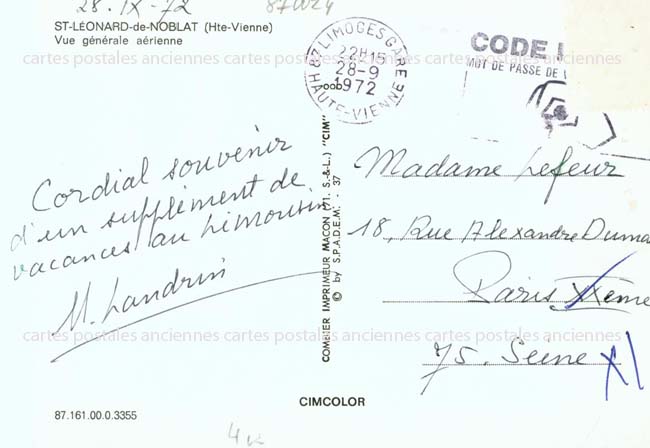 28-IX-72
87W24
ST-LÉONARD-de-NOBLAT (Hte-Vienne)
Vue générale aérienne
87 LIMOGES GARE
22H15
28-9
1972
HAUTE-VIENNE
CODE
MOT DE PASSE DE
cartes postales anciennes cartes postales anciennes cartes postales anciennes
Cordial souvenir
d'un supplément de
vacances au Limousin
M. Landrin
COMBIER IMPRIMEUR MACON (71. S.-&-L.) "CIM"
© by S.P.A.D.E.M. - 37
Madame Lefeur
18, Rue Alexandre Dumas
Paris XXeme
75. Seine
XI
cartes postales anciennes cartes postales anciennes cartes postales anciennes
cartes postales anciennes cartes postales anciennes cartes postales anciennes
CIMCOLOR
87.161.00.0.3355